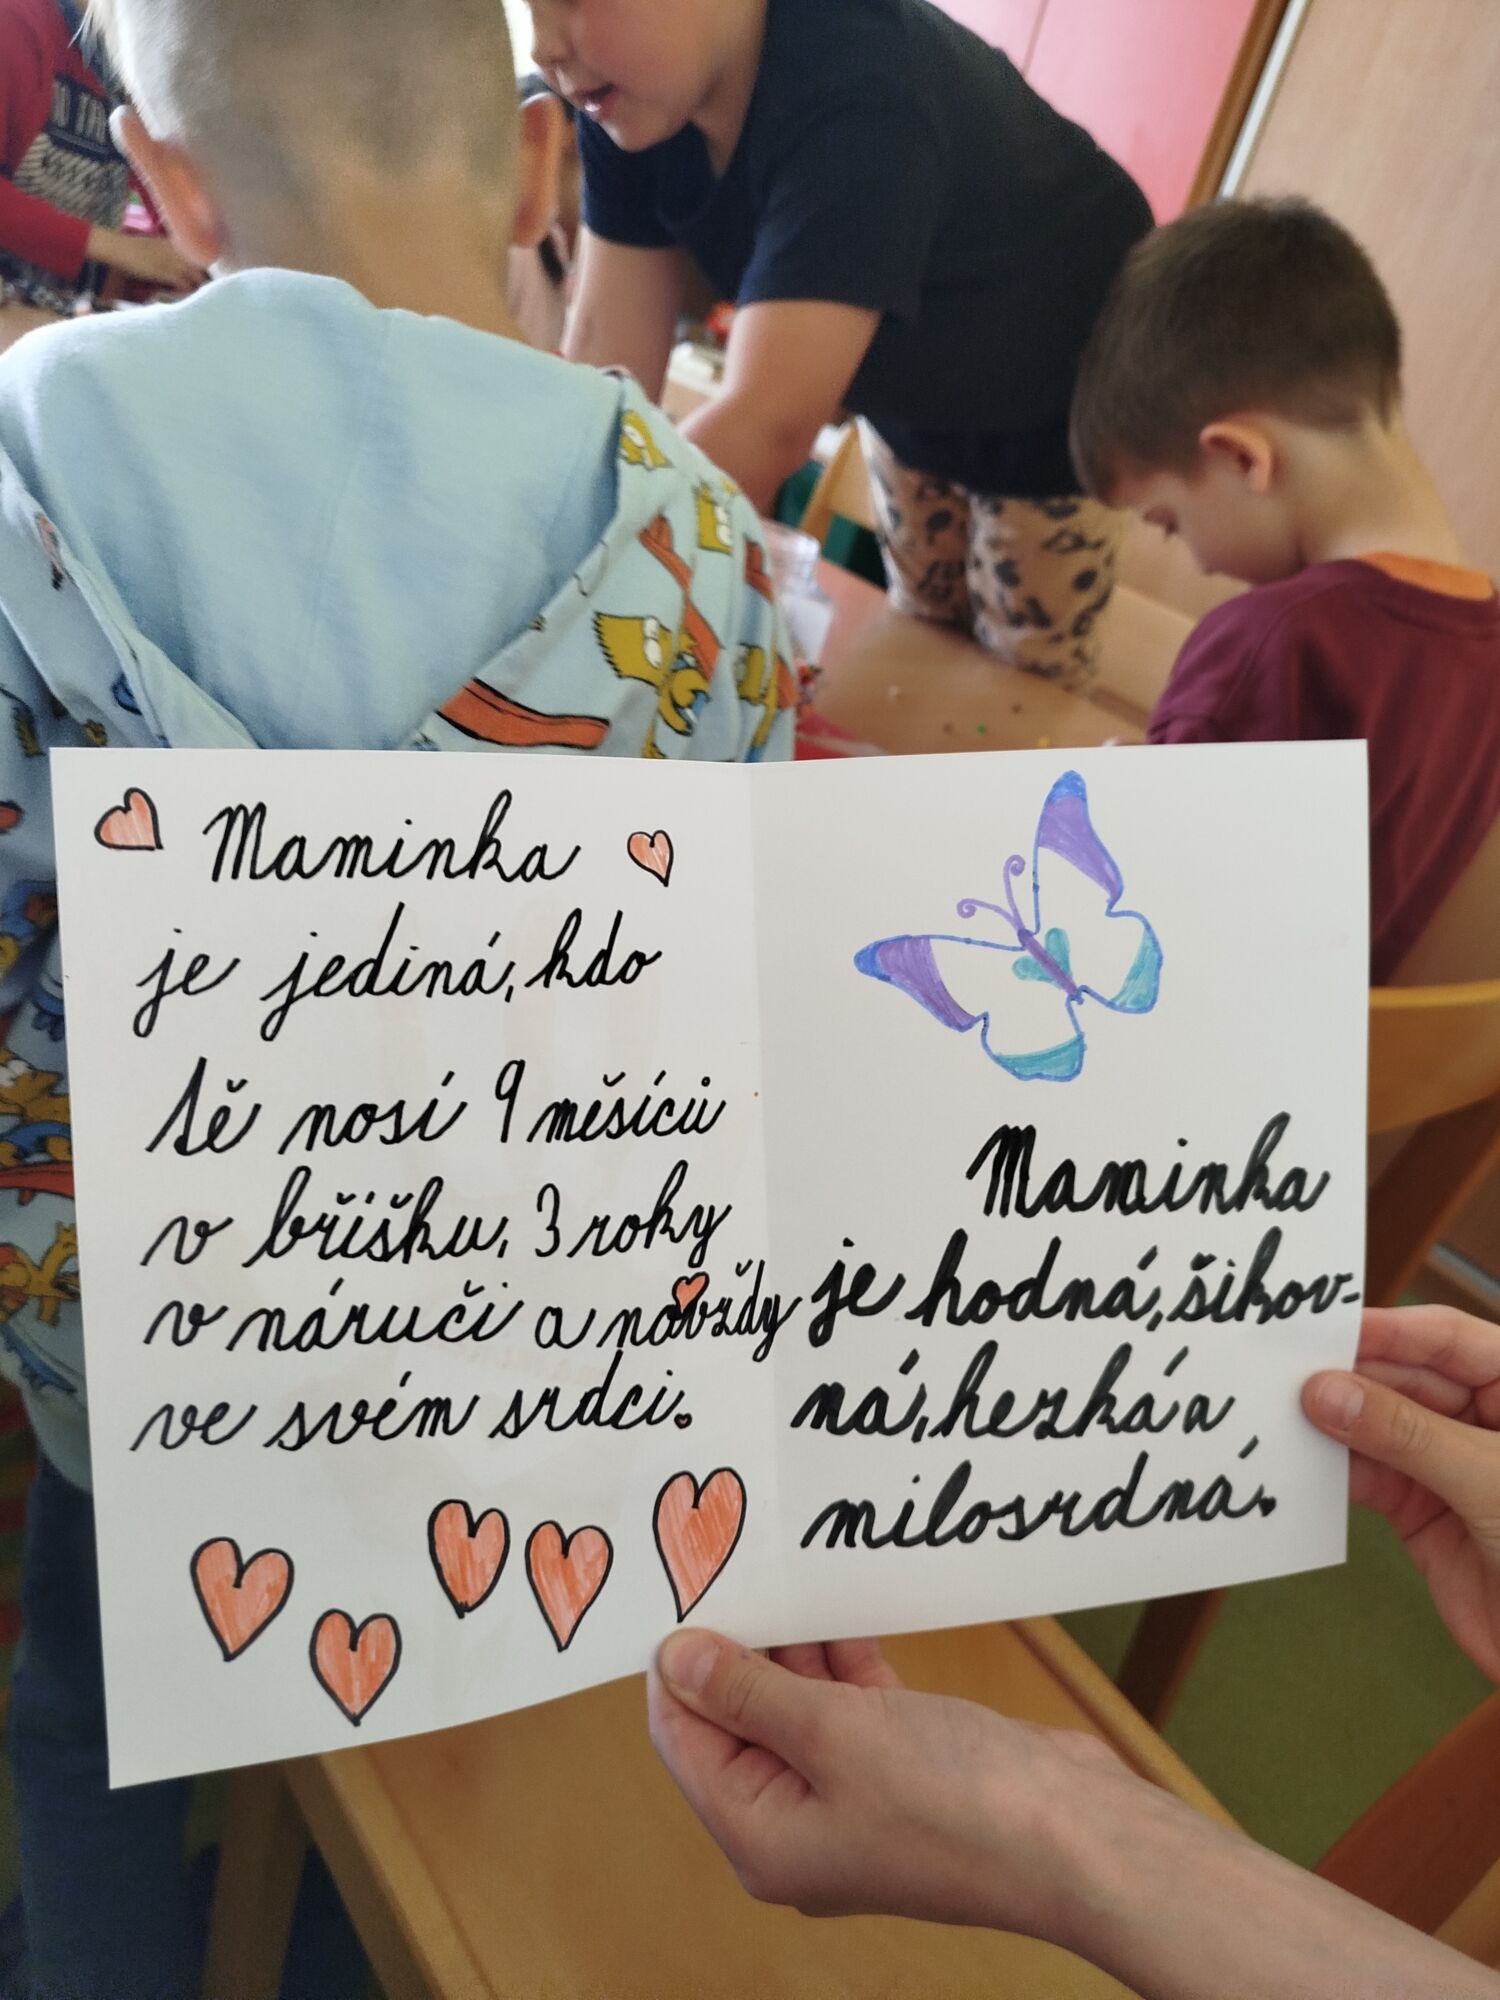 Maminka
je jediná, kdo
tě nosí 9 měsíců
v bříšku, 3 roky
v náručí a navždy
ve svém srdci.
Maminka
je hodná, šikov-
ná, hezká a
milosrdná.